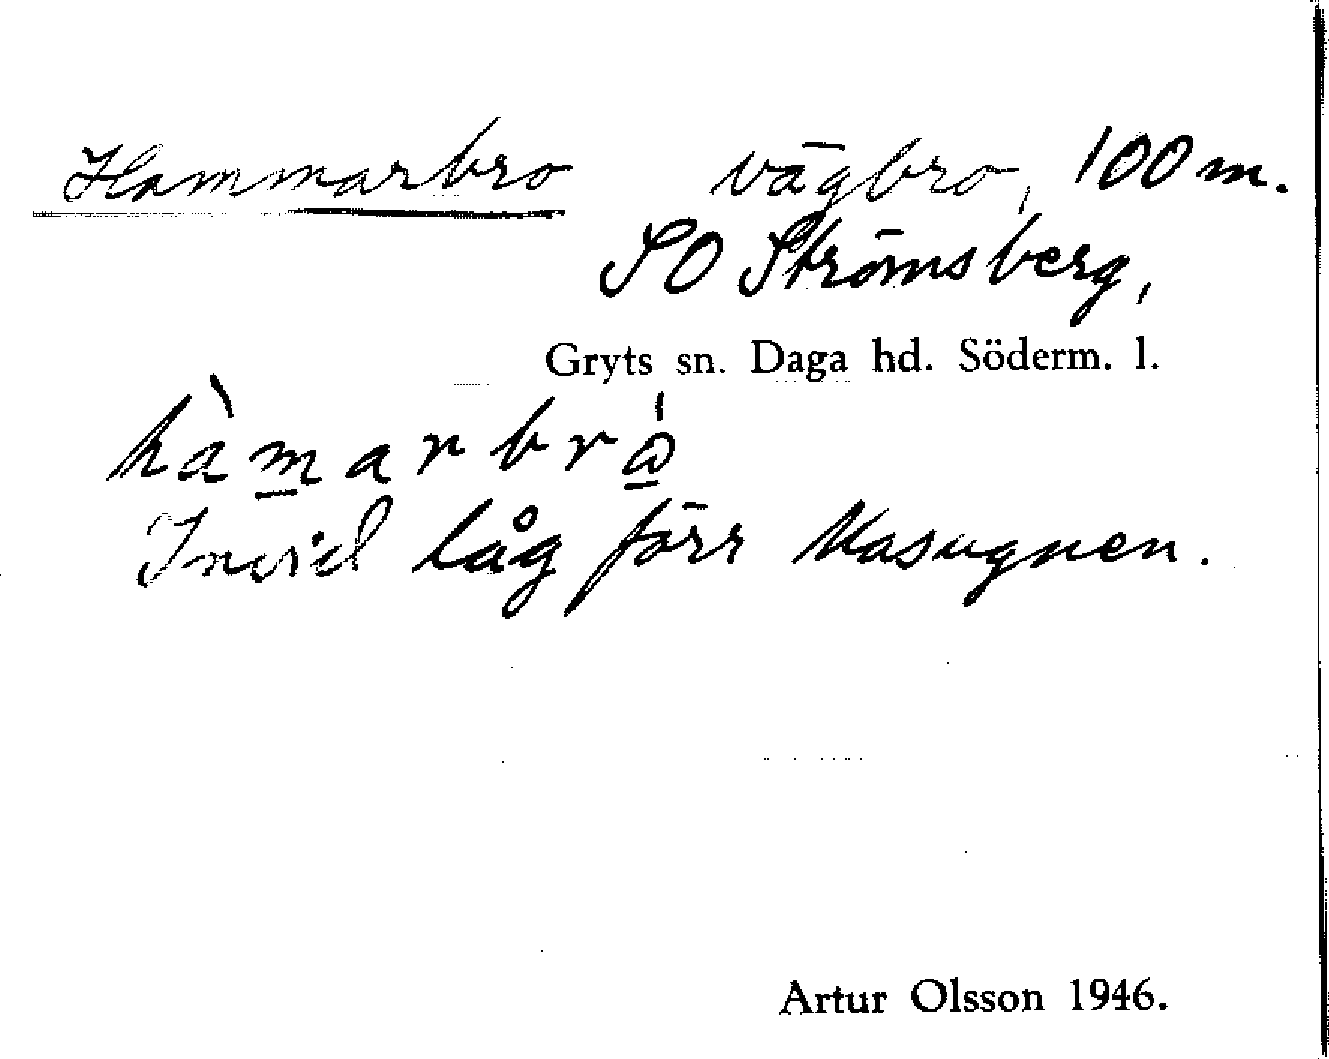 Hammarbro vägbro, 100 m.
SO Strömsberg,
Gryts sn. Daga hd. Söderm. l.
hàmarbrώ̲
Invid låg förr Masugnen.
Artur Olsson 1946.